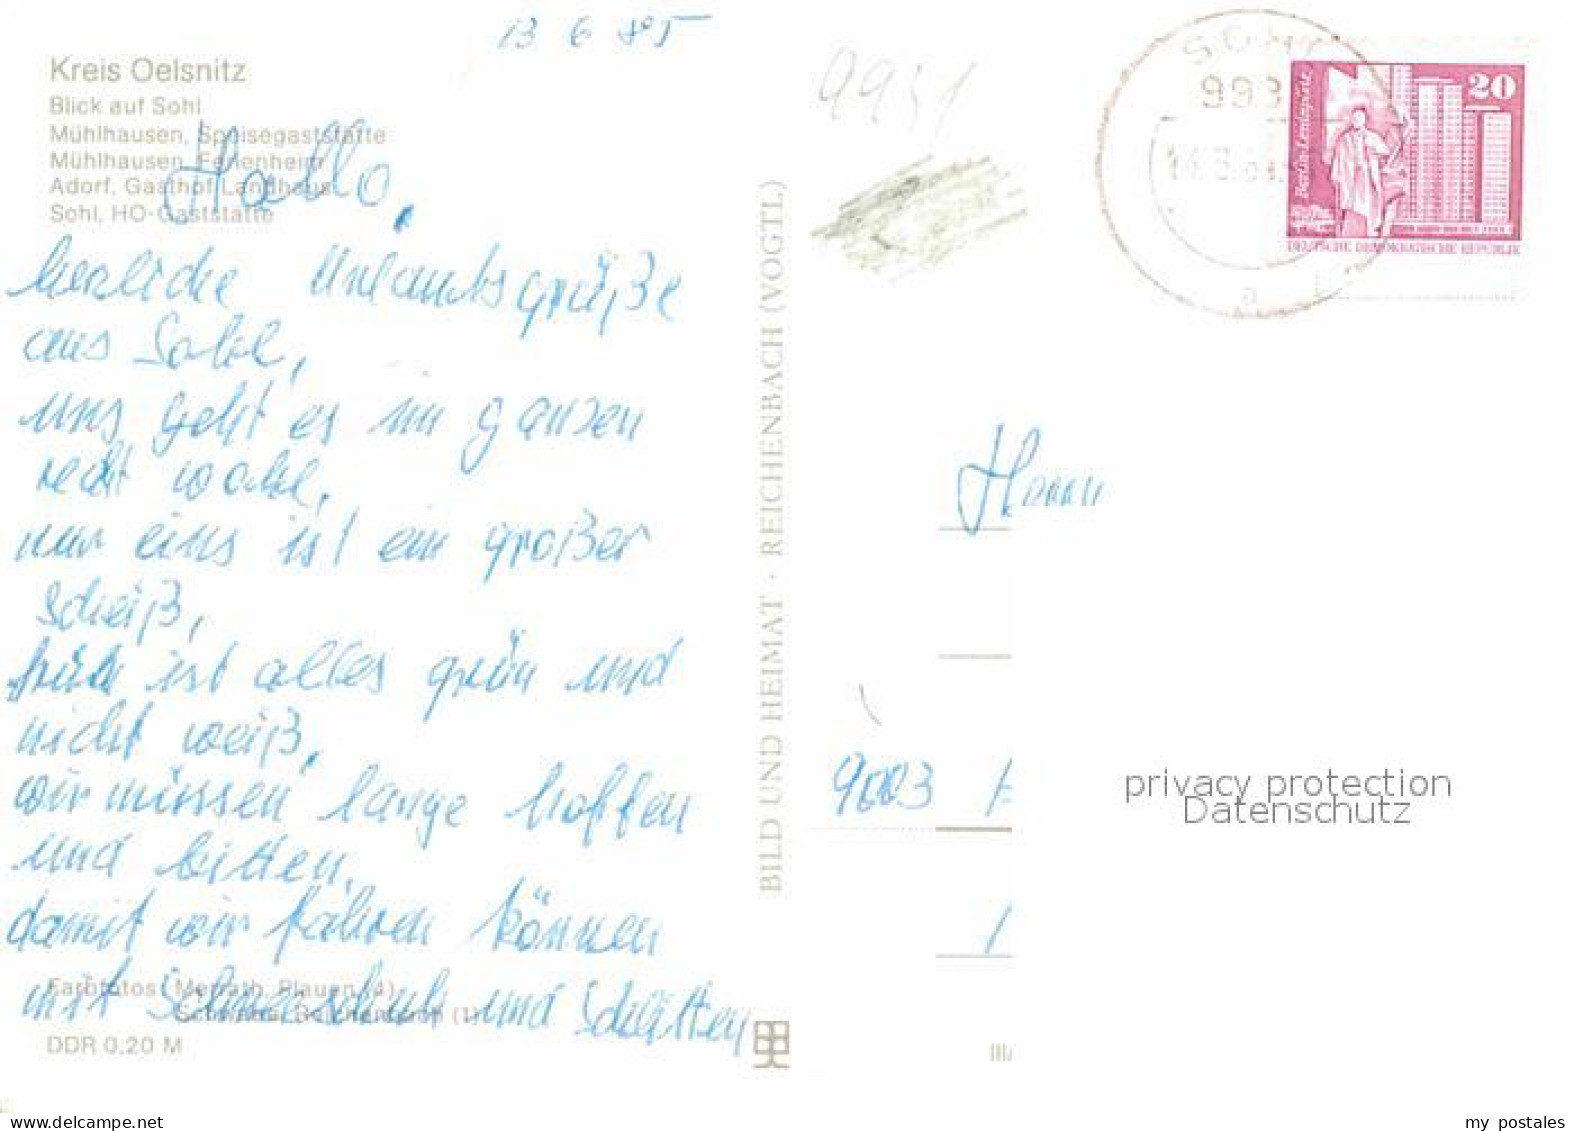 13 6 85
Kreis Oelsnitz
Blick auf Sohl
Mühlhausen, Speisegaststätte
Mühlhausen, Ferienheim
Adorf, Gasthof Landhaus
Sohl, HO-Gaststätte
Hallo,
herzliche Urlaubsgrüße
aus Sohl,
uns geht es im ganzen
recht wohl,
nur eins ist ein großer
Scheiß,
früh ist alles grün und
nicht weiß,
wir müssen lange hoffen
und bitten,
damit wir fahren können
mit Schneeschuh und Schlitten
Farbfotos: Merrath, Plauen (4),
Schwabe, Reichenbach (1)
DDR 0,20 M
BILD UND HEIMAT · REICHENBACH (VOGTL)
9931
SOHL
993
20
Berlin-Leninplatz
DEUTSCHE DEMOKRATISCHE REPUBLIK
9003
privacy protection
Datenschutz
my postales